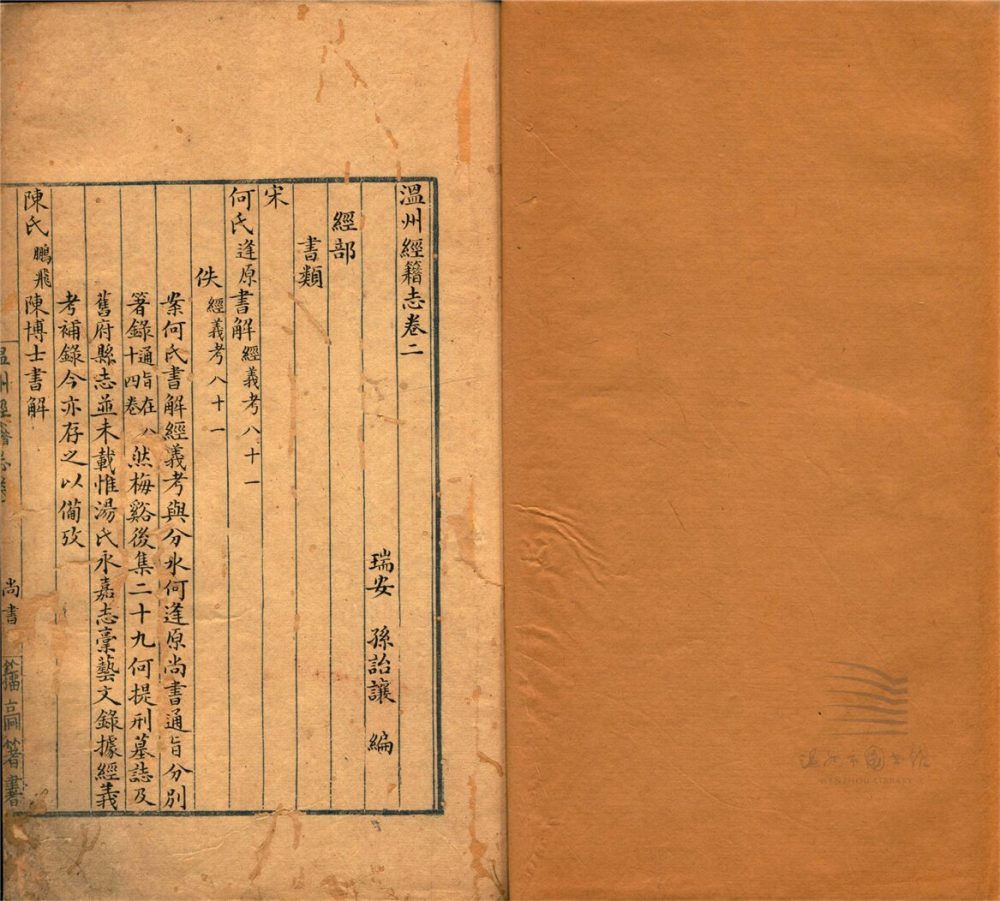 溫州經籍志卷二
瑞安 孫詒讓 編
經部
書類
宋
何氏逢原書解 經義考八十一
佚 經義考八十一
案何氏書解經義考與分水何逢原尚書通旨分別
著錄通旨在八十四卷然梅谿後集二十九何提刑墓誌及
舊府縣志並未載惟湯氏永嘉志稾藝文錄據經義
考補錄今亦存之以備攷
陳氏鵬飛陳博士書解
尚書
著書
溫州市圖書館
WENZHOU LIBRARY